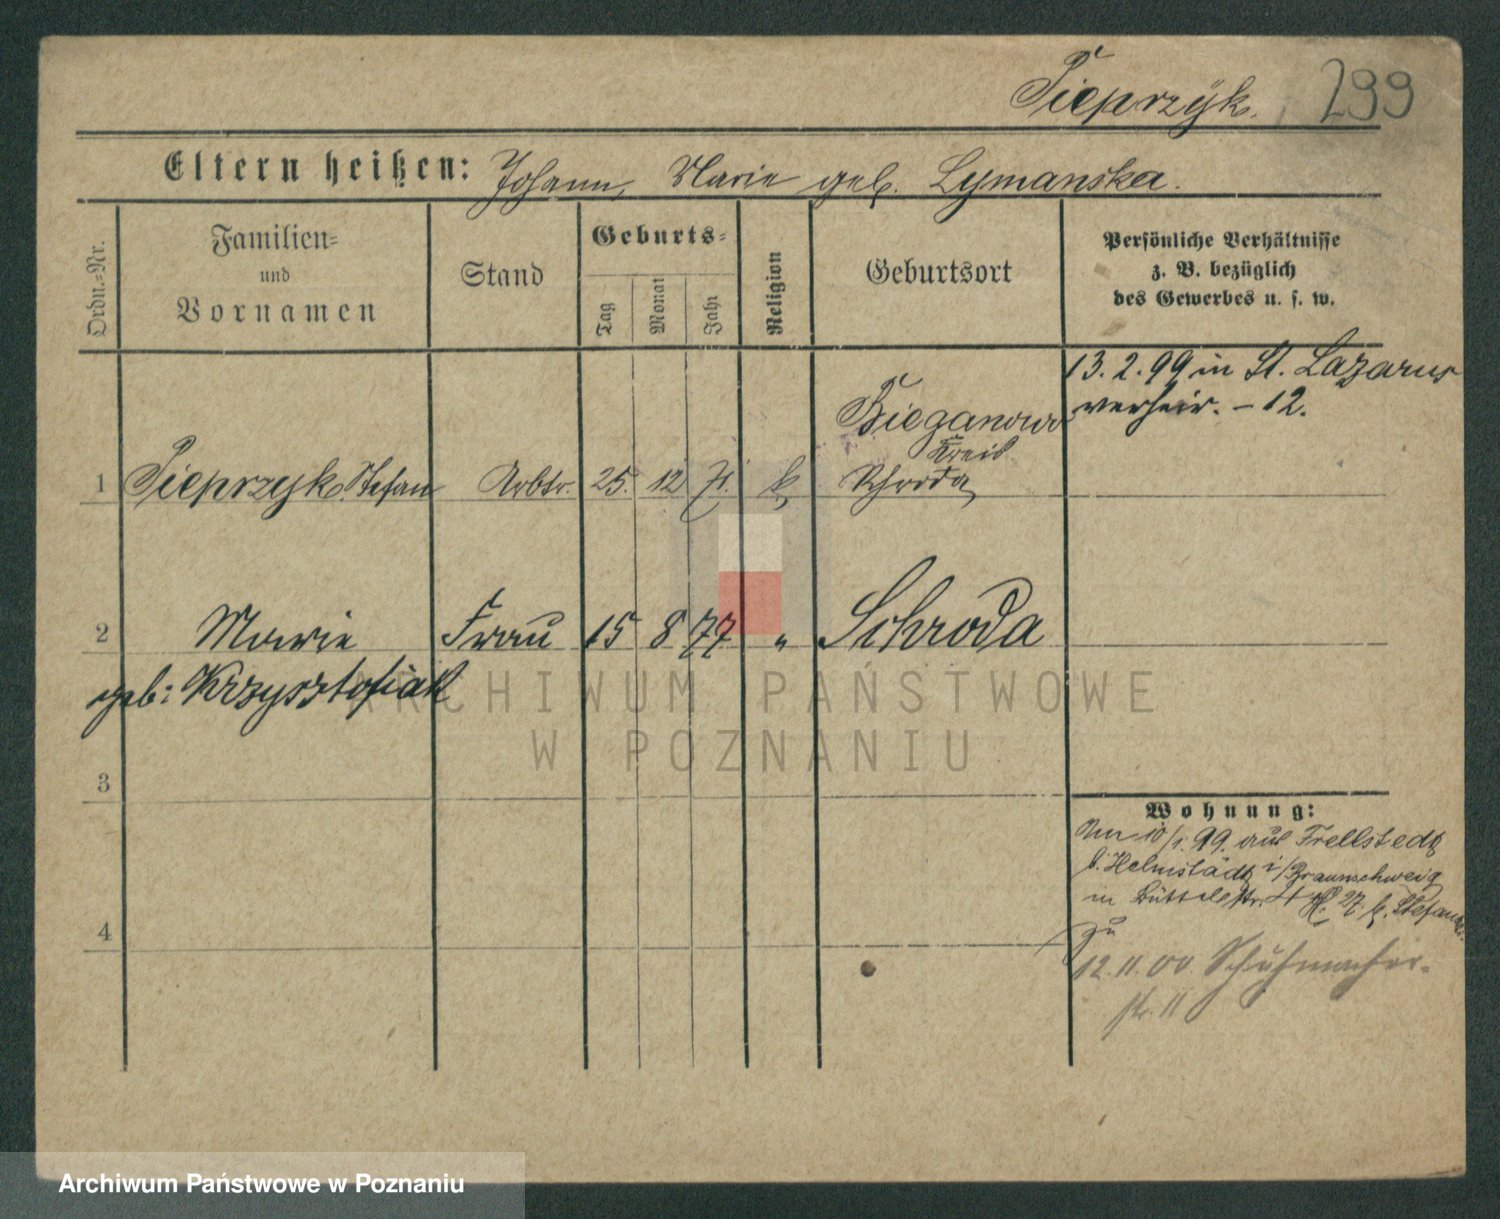 Pieprzÿk. 299
Eltern heißen: Johann, Marie geb. Lymanska.
Ordn.-Nr.
Familien-
und
Vornamen
Stand
Geburts-
Tag
Monat
Jahr
Religion
Geburtsort
Persönliche Verhältnisse
z. B. bezüglich
des Gewerbes u. s. w.
13. 2. 99 in St. Lazarus
verheir. - 12.
Bieganowo
Kreis
1 Pieprzyk Stefan Arbtr. 25. 12 71. k Schroda
2 Marie Frau 15 8 77 " Schroda
geb: Krzysztofiak
3
Wohnung:
Am 10/1. 99. aus Frellstedt
b. Helmstädt i/Braunschweig
in Büttelstr. 27. b. Stefan
zu
4
12. 11. 00. Schuhmacher-
str. 11
ARCHIWUM PAŃSTWOWE
W POZNANIU
Archiwum Państwowe w Poznaniu